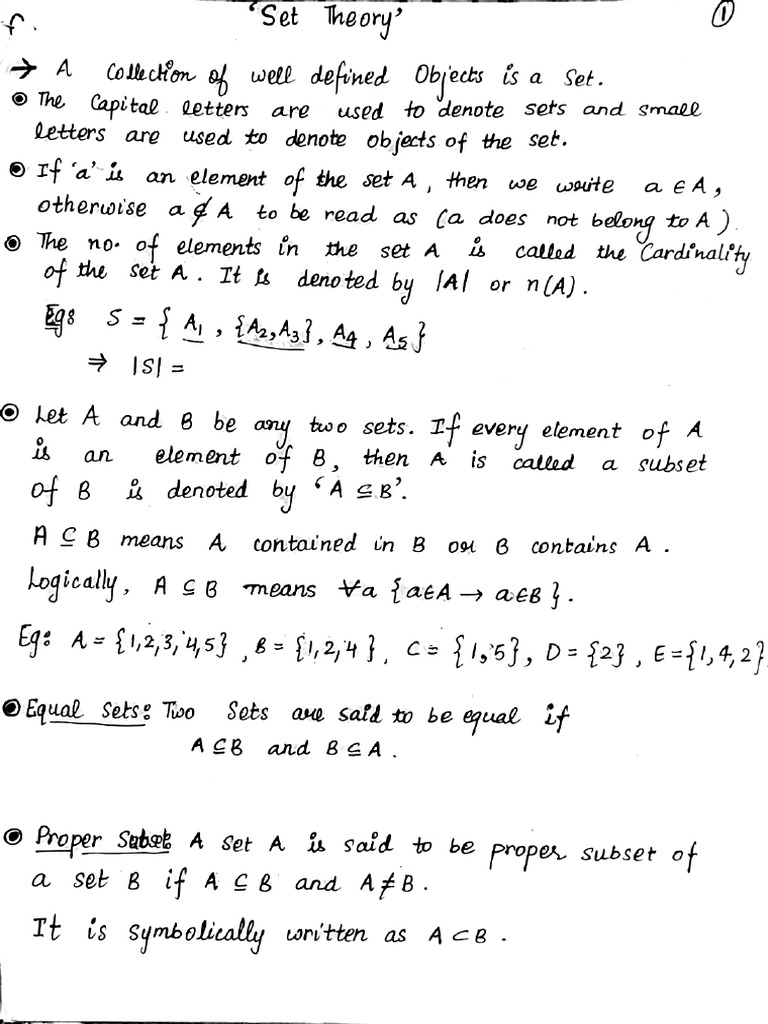 'Set Theory'
1
f.
→ A Collection of well defined Objects is a Set.
◉ The Capital letters are used to denote sets and small
letters are used to denote objects of the set.
◉ If 'a' is an element of the set A, then we write a ∈ A,
otherwise a ∉ A to be read as (a does not belong to A).
◉ The no. of elements in the set A is called the Cardinality
of the set A. It is denoted by |A| or n(A).
Eg: S = { A₁ , {A₂,A₃}, A₄ , A₅ }
⇒ |S| =
◉ Let A and B be any two sets. If every element of A
is an element of B, then A is called a subset
of B is denoted by 'A ⊆ B'.
A ⊆ B means A contained in B or B contains A.
Logically, A ⊆ B means ∀a {a∈A → a∈B}.
Eg: A = {1,2,3,4,5} , B = {1,2,4}, C = {1,5}, D = {2} , E = {1,4,2}.
◉ Equal Sets: Two Sets are said to be equal if
A ⊆ B and B ⊆ A.
◉ Proper Subset: A set A is said to be proper subset of
a set B if A ⊆ B and A ≠ B.
It is symbolically written as A ⊂ B.